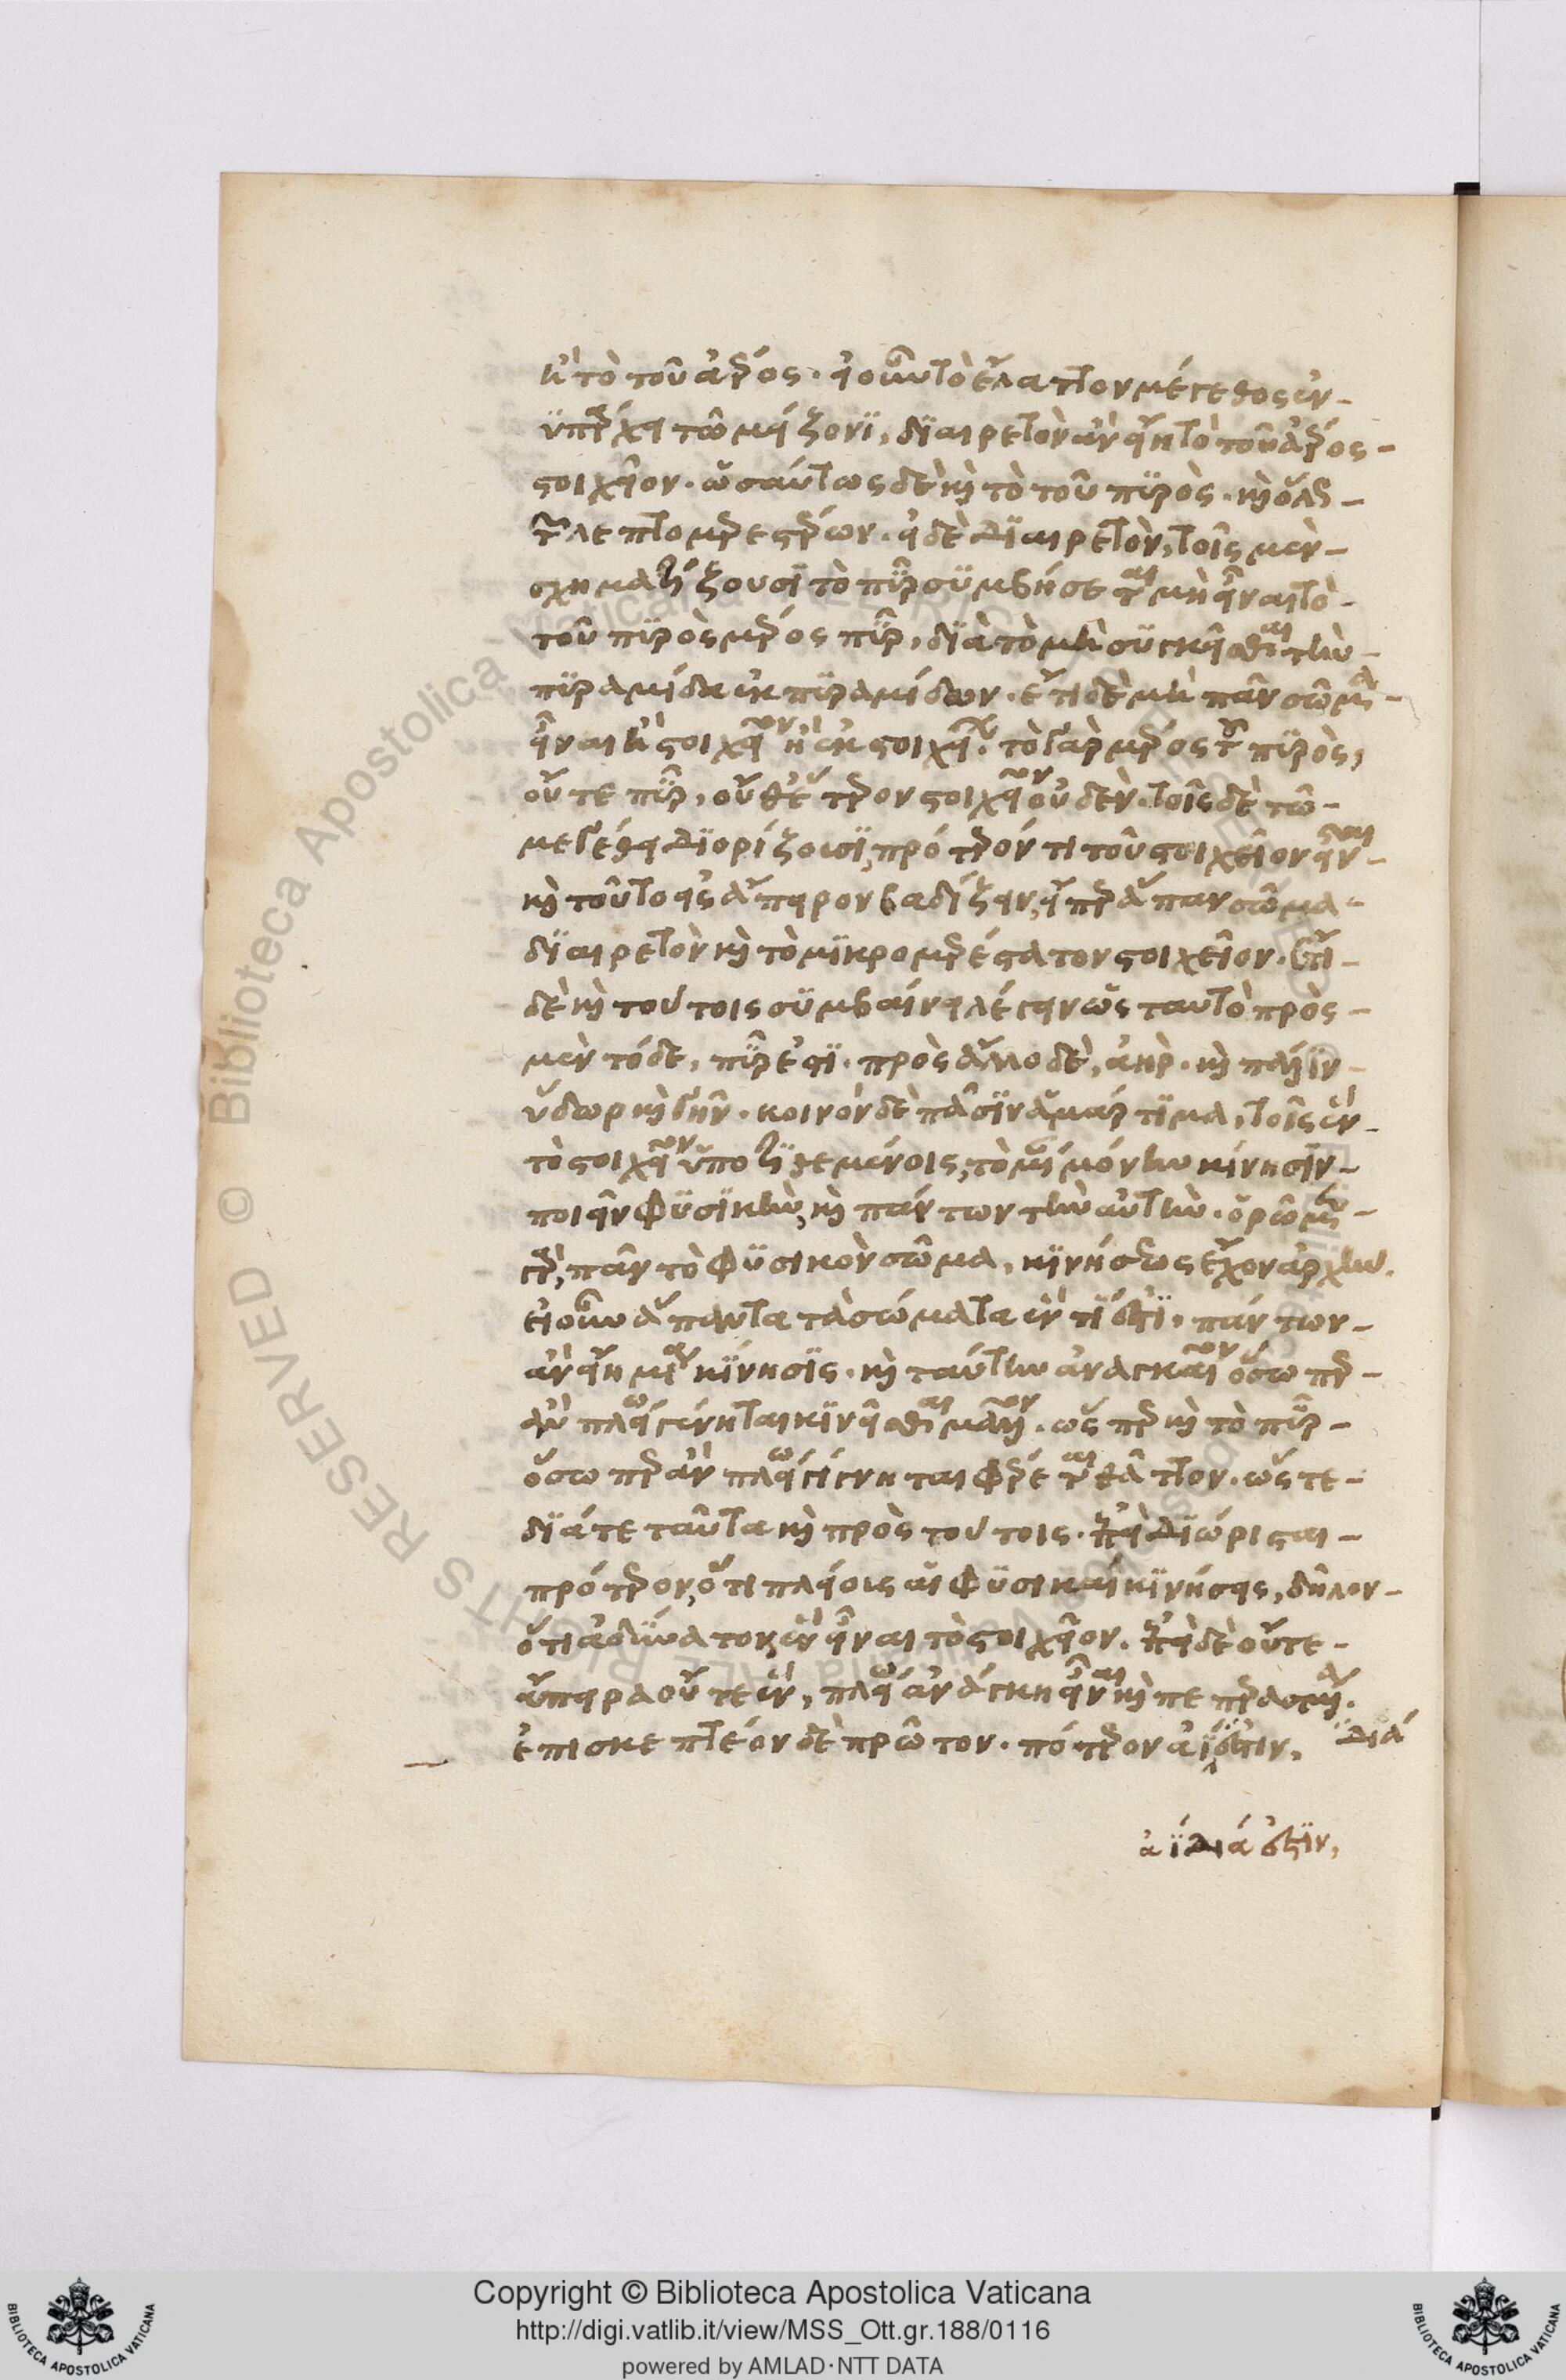 ἢ τὸ τοῦ ἀέρος· εἰ οὖν τὸ ἔλαττον μέγεθος ἐν-
ϋπάρχει τῶ μείζονϊ, δϊαιρετὸν ἂν εἴη τὸ τοῦ ἀέρος-
στοιχεῖον· ὡσαύτως δὲ καὶ τὸ τοῦ πϋρὸς· καὶ ὅλως-
τῶν λεπτομερεστέρων· εἰ δὲ δϊαιρετὸν, τοῖς μὲν-
σχηματίζουσϊ τὸ πῦρ σϋμβήσεται μὴ εἶναι τὸ-
τοῦ πϋρὸς μέρος πῦρ, δϊὰ τὸ μὴ σϋγκεῖσθαι τὴν-
πϋραμίδα ἐκ πϋραμίδων· ἔτι δὲ μὴ πᾶν σῶμα-
εἶναι ἢ στοιχεῖον ἢ ἐκ στοιχείων· τὸ γὰρ μέρος τοῦ πϋρὸς,
οὔτε πῦρ, οὔθ' ἕτερον στοιχεῖον οὐδέν· τοῖς δὲ τῶ-
μεγέθει δϊορίζουσϊ, πρότερόν τι τοῦ στοιχεῖον εἶναι-
καὶ τοῦτο εἰς ἄπειρον βαδίζειν, εἴπερ ἅπαν σῶμα-
δϊαιρετὸν καὶ τὸ μϊκρομερέστατον στοιχεῖον· ἔτι-
δὲ καὶ τούτοις σϋμβαίνει λέγειν ὡς ταυτὸ πρὸς-
μὲν τόδε, πῦρ ἐστϊ· πρὸς ἄλλο δὲ, ἀήρ· καὶ πάλϊν-
ὕδωρ καὶ γῆν· κοινὸν δὲ πᾶσϊν ἁμάρτϊμα, τοῖς ἓν-
τὸ στοιχεῖον ὑποτϊθεμένοις, τὸ μίαν μόνην κίνησϊν-
ποιεῖν φϋσϊκὴν, καὶ πάντων τὴν αὐτὴν· ὁρῶμεν-
γὰρ, πᾶν τὸ φϋσικὸν σῶμα, κϊνήσεως ἔχον ἀρχὴν.
εἰ οὖν ἅπαντα τὰ σώματα ἕν τΐ ἐστϊ· πάντων-
ἂν εἴη μία κϊνησϊς· καὶ ταύτην ἀναγκαῖον ὅσωπερ-
ἂν πλείω γένηται κϊνεῖσθαι μᾶλλον· ὥσπερ καὶ τὸ πῦρ-
ὅσωπερ ἂν πλείω γίγνηται φέρεται θᾶττον· ὥστε-
δϊά τε ταῦτα καὶ πρὸς τούτοις· ἐπεὶ δϊώρισται-
πρότερον, ὅτι πλείοις αἱ φϋσικαί κϊνήσεις, δῆλον-
ὅτι ἀδϋνατον, ἓν εἶναι τὸ στοιχεῖον. ἐπεὶ δὲ οὔτε-
ἄπειρα οὔτε ἓν, πλείω ἀνάγκη εἶναι καὶ πεπερασμένα.
ἐπισκεπτέον δὲ πρῶτον· πότερον ἀΐἐστιν, δϊά
ἀΐδιά ἐστϊν,
Copyright © Biblioteca Apostolica Vaticana
http://digi.vatlib.it/view/MSS_Ott.gr.188/0116
powered by AMLAD·NTT DATA